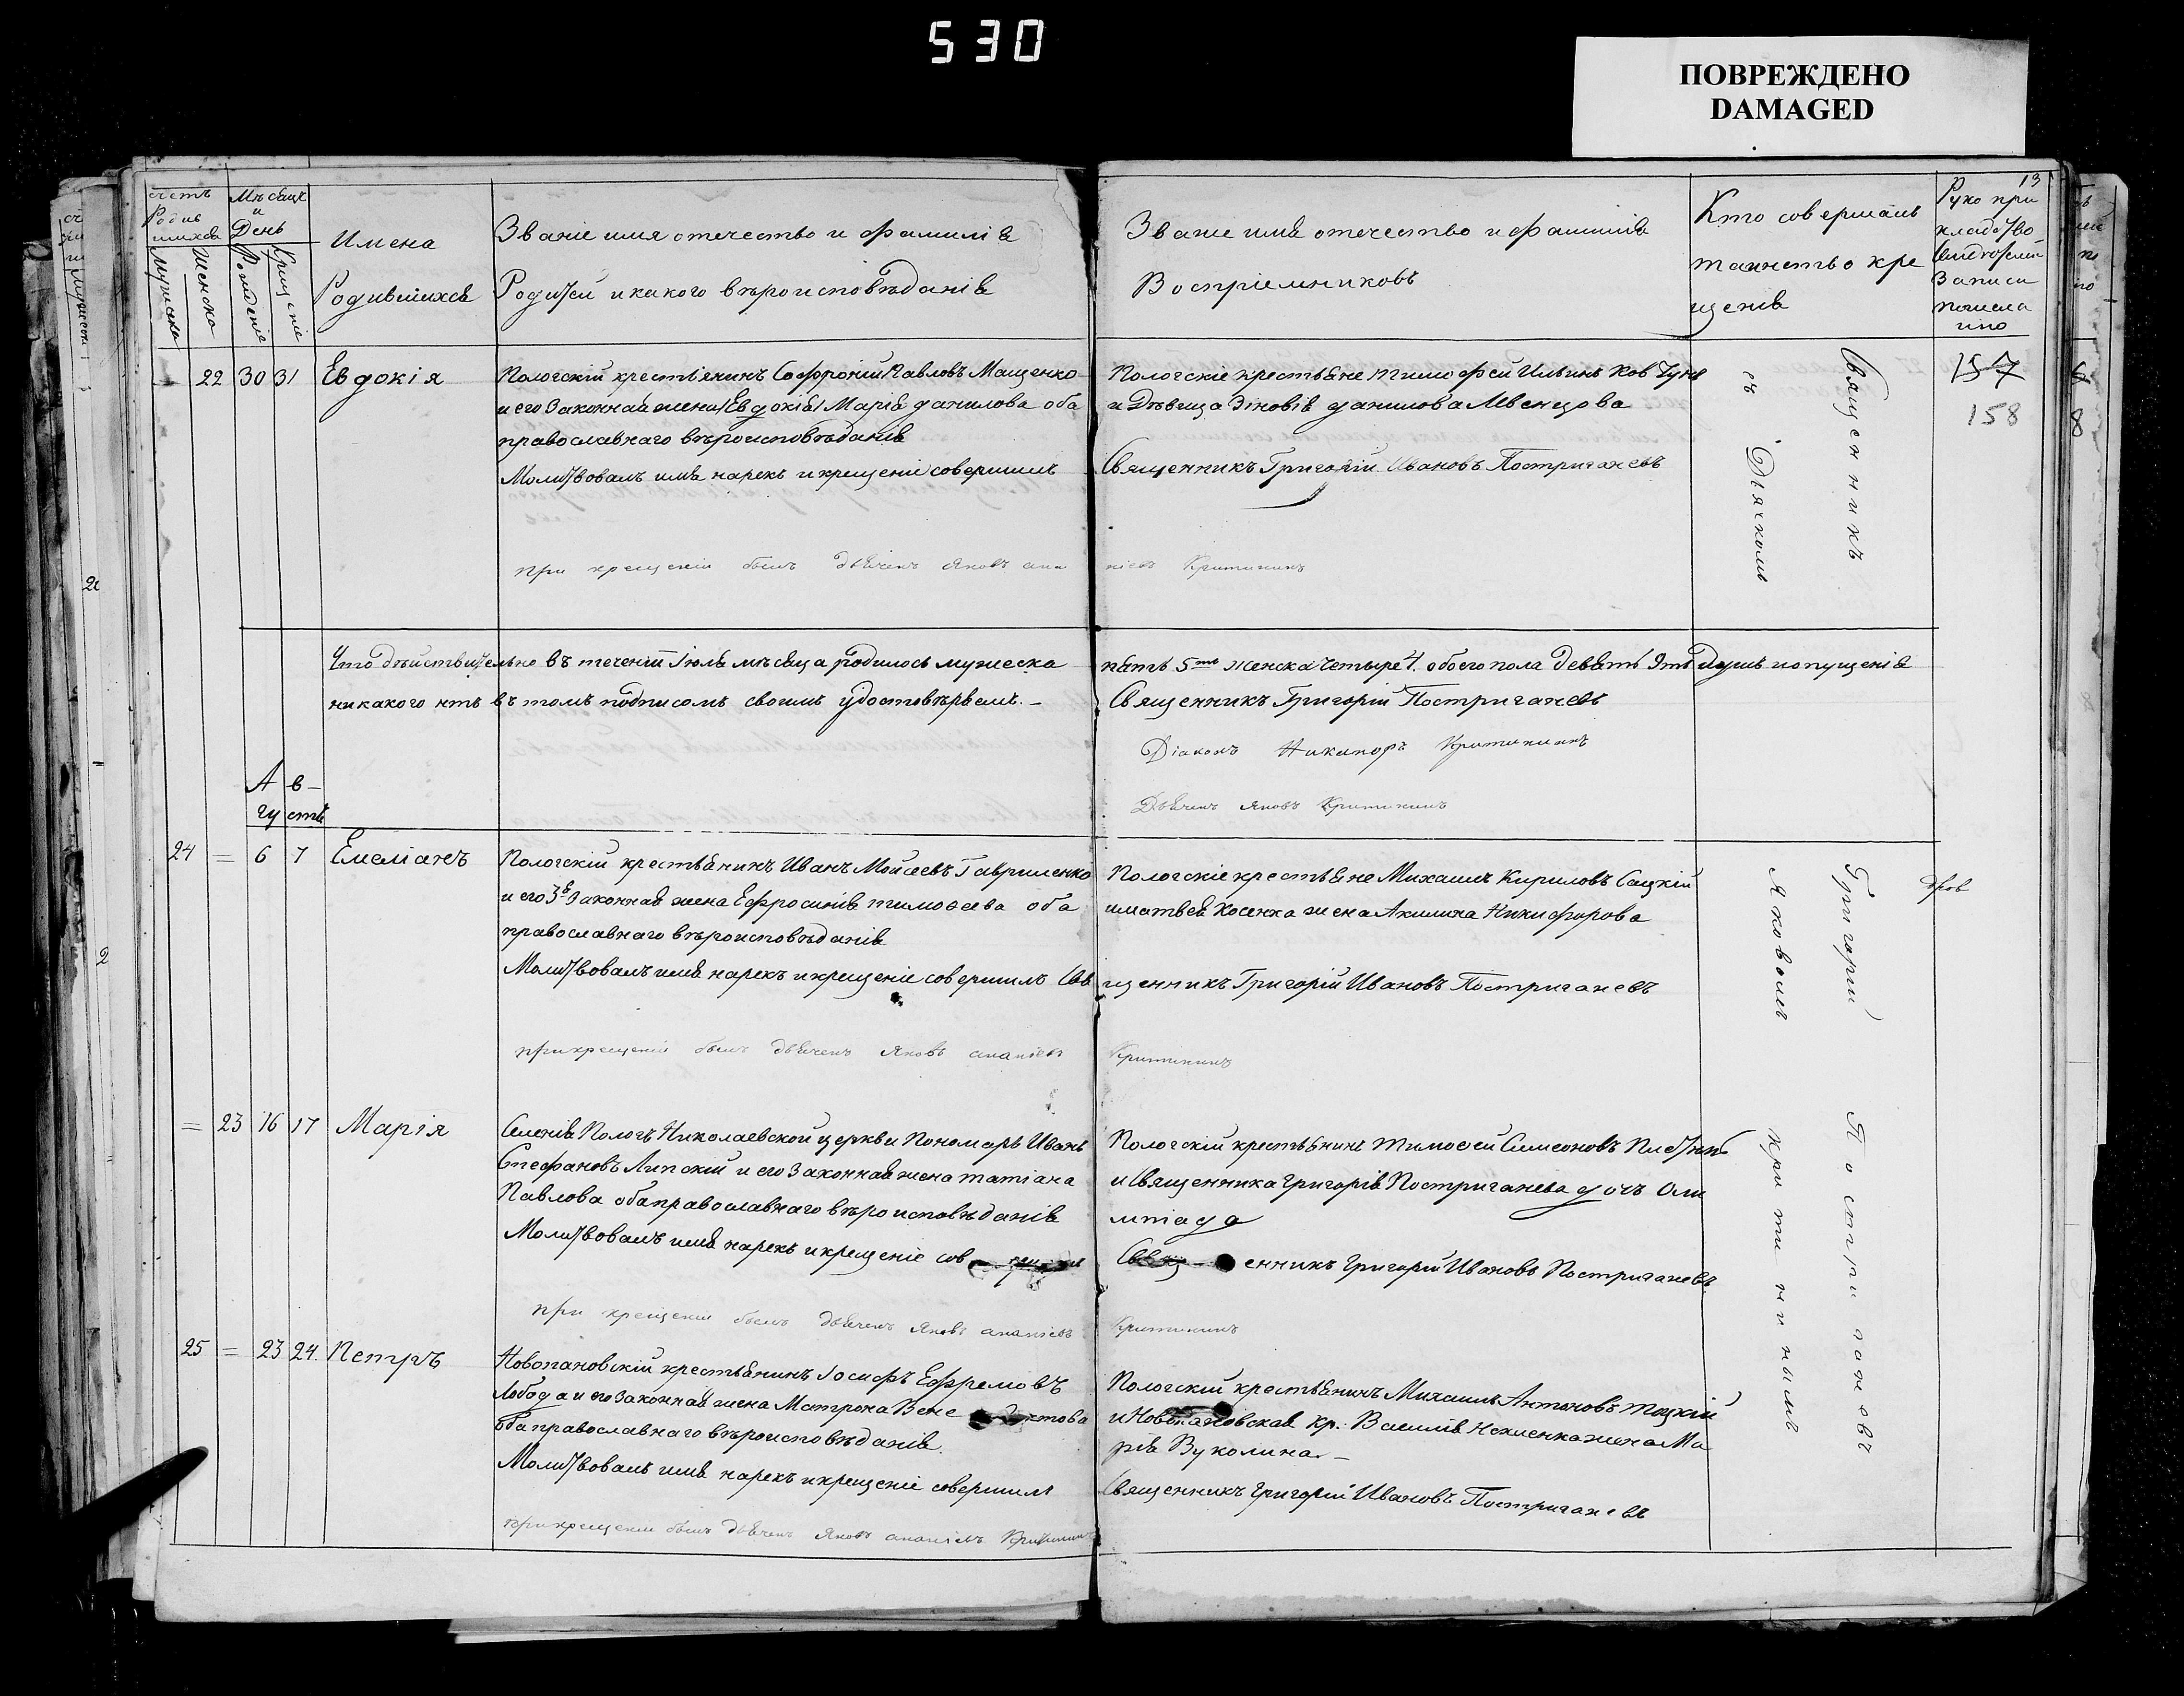 530
ПОВРЕЖДЕНО
DAMAGED
13
счетъ Родив шихся
Мѣсяцъ и День
мужеска
женска
Рожденіе
Крщеніе
Имена
Родившихся
Званіе имя отечество и фамилія
Родитей и какого вѣроисповѣданія
Званіе имя отечество и фамилія
Воспріемниковъ
Кто совершалъ
таинство кре
щенія
Руко при
кладство
Записи
22 30 31 Евдокія
Пологскій крестьянинъ Софроній Павловъ Мащенко
и его Законная жена Евдокія Марія данилова оба
православнаго вѣроисповѣданія
Молитвовалъ имя нарекъ и крещеніе совершилъ
Пологскіе крестьяне тимофей Ильинъ Ковтунъ
и Дѣвица Зіновія данилова
Священникъ Григорій Ивановъ Постригачевъ
при крещеніи былъ дьячекъ Яковъ анан
іевъ Критининъ
157
158
Священникъ
съ Дьячкомъ
Что дѣйствительно въ теченіи Іюля мѣсяца родилось мужеска
никакого нѣтъ въ томъ подписомъ своимъ удостовѣряемъ. –
пять 5ть женска четыре 4. обоего пола девять 9ть душъ и опущенія
Священникъ Григорій Постригачевъ
Діаконъ Никаноръ Критининъ
Дьячекъ Яковъ Критининъ
Ав–
густъ
24 = 6 7 Емеліанъ
Пологскій крестьянинъ Иванъ Мойсеевъ Гавриленко
и его Законная жена Ефросинія тимофеева оба
православнаго вѣроисповѣданія
Молитвовалъ имя нарекъ и крещеніе совершилъ Свя
Пологскіе крестьяне Михаилъ Кириловъ Сацкій
и матвея Косенка жена Акилина Никифорова
щенникъ Григорій Ивановъ Постригачевъ
при крещеніи былъ дьячекъ Яковъ ананіевъ
Критининъ
Григорій
Яковомъ
= 23 16 17 Марія
Селенія Пологъ Николаевской церкви Пономарь Иванъ
Стефановъ Липскій и его Законная жена татіана
Павлова оба православнаго вѣроисповѣданія
Молитвовалъ имя нарекъ и крещеніе сов
Пологскій крестьянинъ тимофей Симеоновъ
и Священника Григорія Постригачева дочь Оли
мпіада
Священникъ Григорій Ивановъ Постригачевъ
при крещеніи былъ дьячекъ Яковъ ананіевъ
Критининъ
Постригачевъ
Критининымъ
25 = 23 24. Петръ
Новопановскій крестьянинъ Іосифъ Ефремовъ
Лобода и его Законная жена Матрона Вене
оба православнаго вѣроисповѣданія.
Молитвовалъ имя нарекъ и крещеніе совершилъ
Пологскій крестьянинъ Михаилъ Антоновъ
и Новопановская кр. Василія жена Ма
рія Вуколина. –
Священникъ Григорій Ивановъ Постригачевъ
при крещеніи былъ дьячекъ Яковъ ананіевъ Критининъ